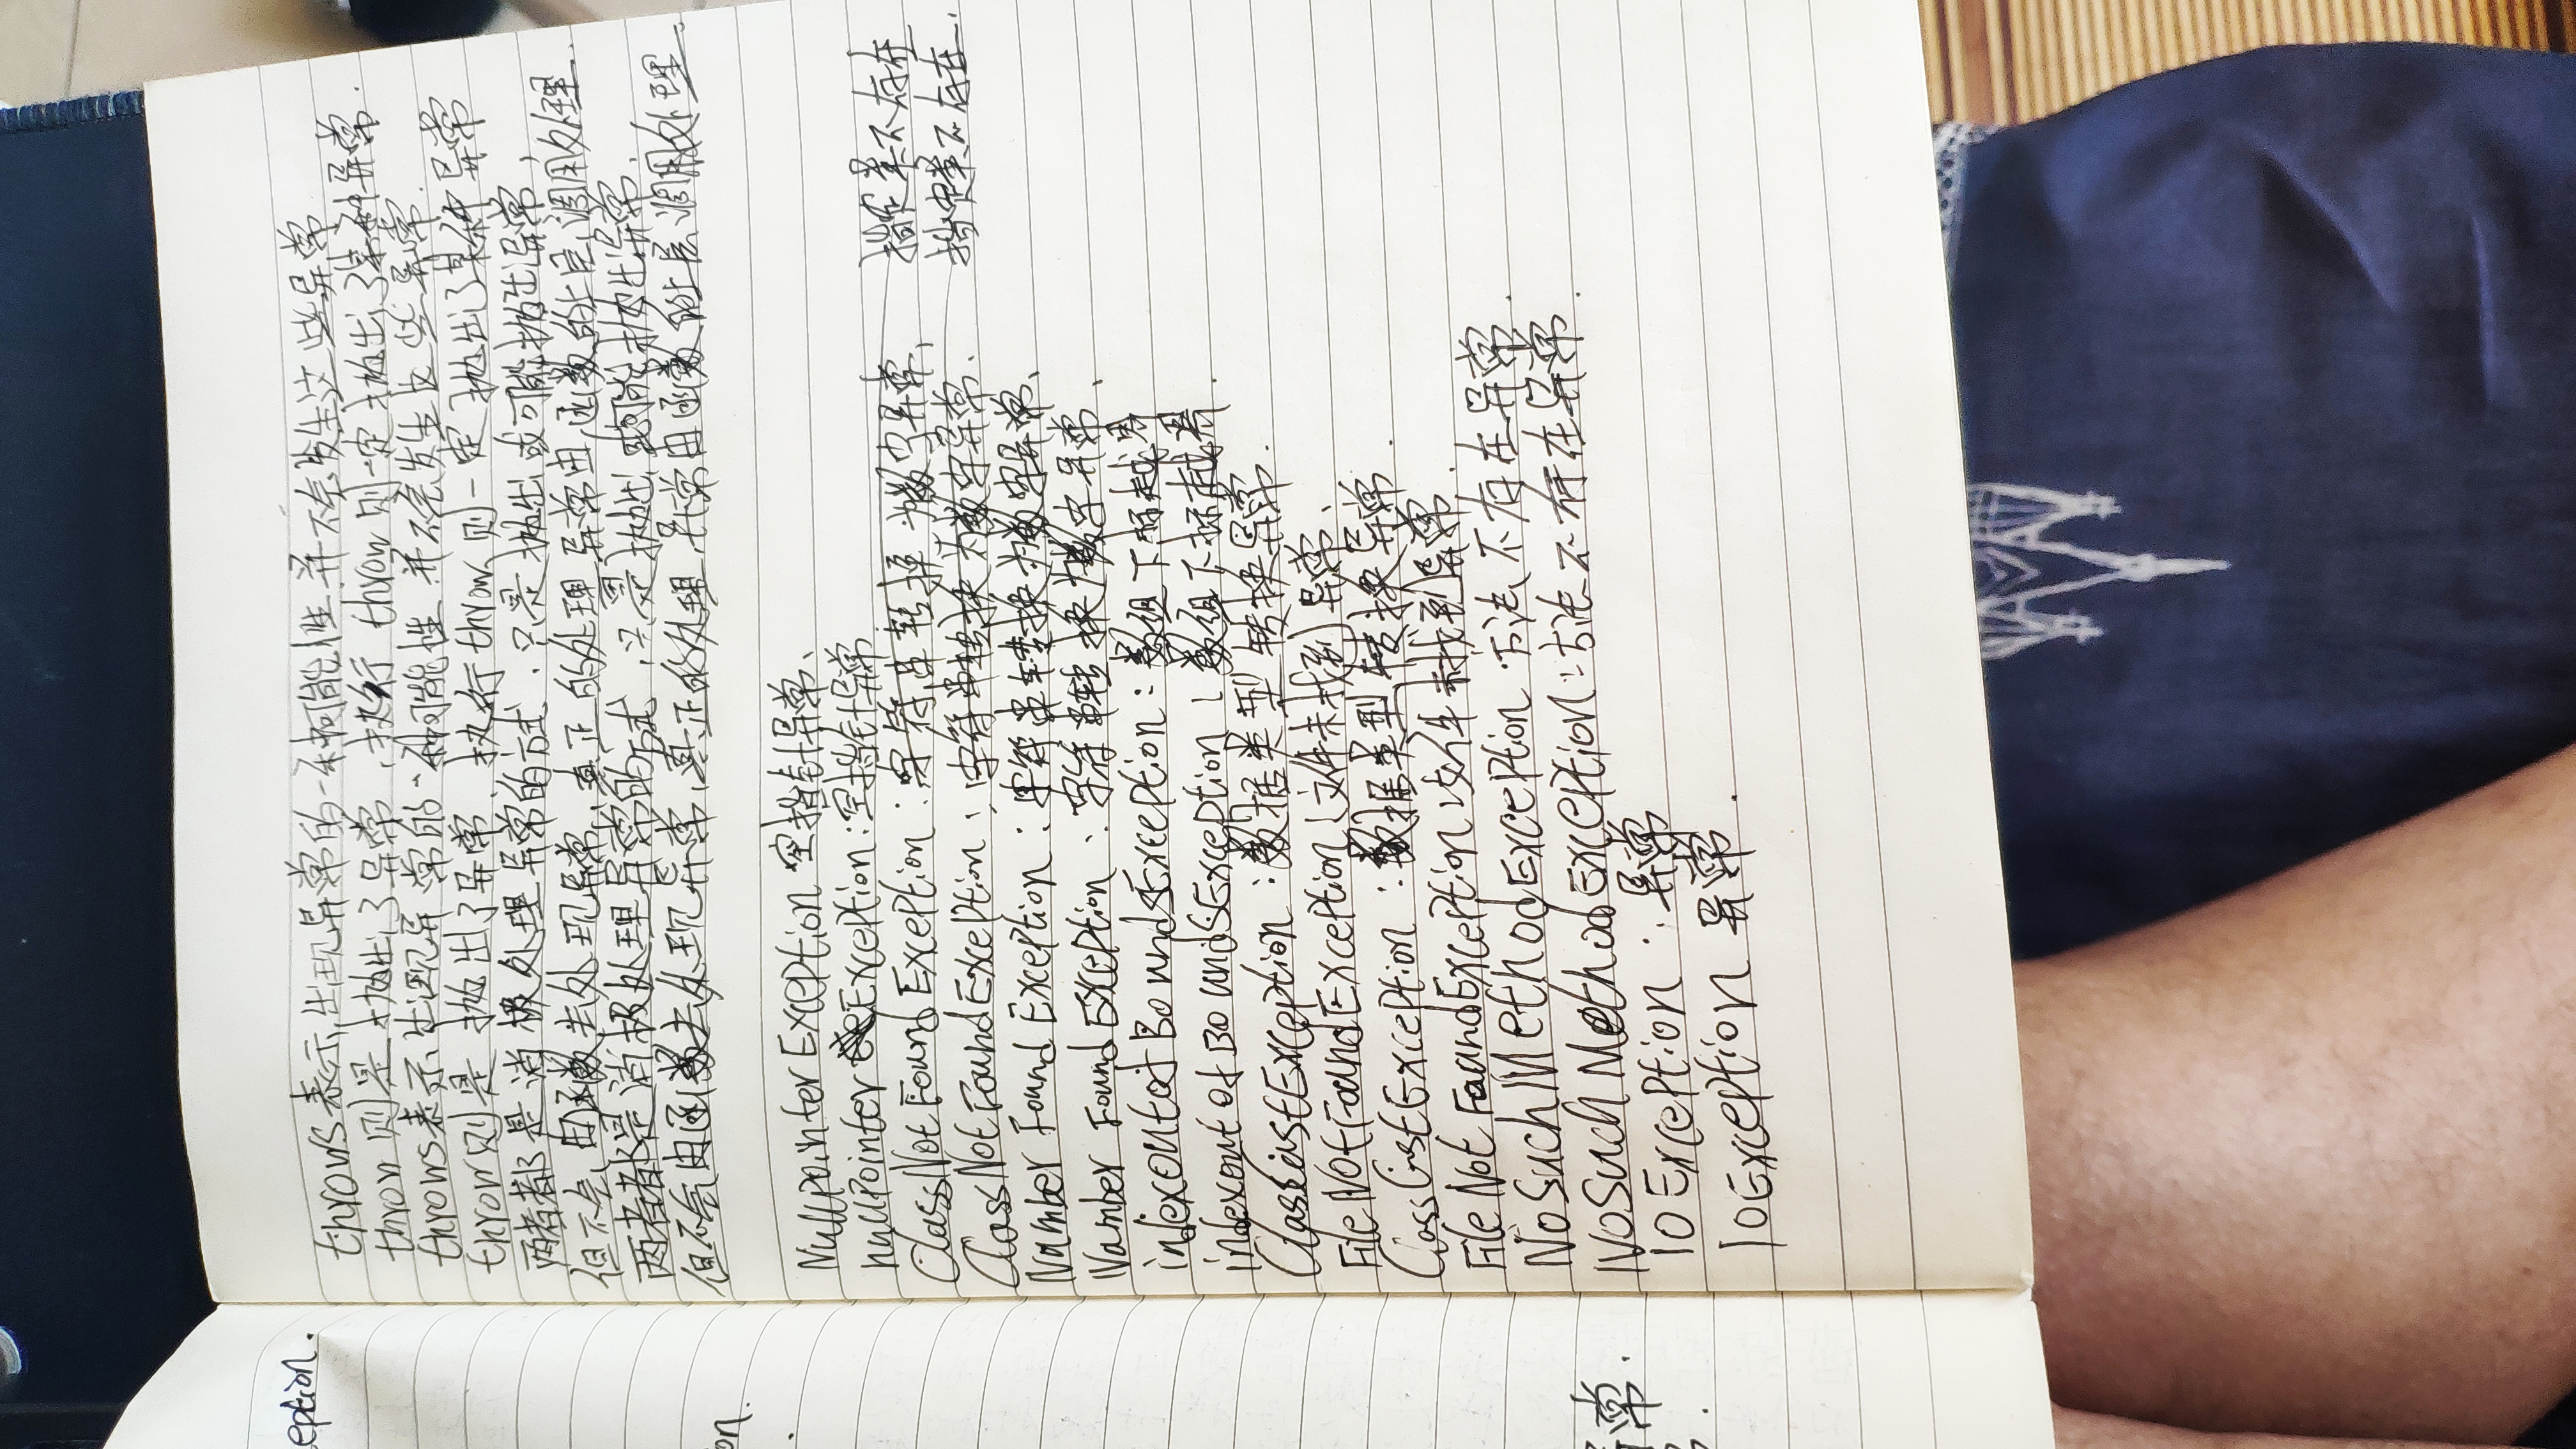 eption.
ion.
常.
throws表示出现异常的一种可能性并不会发生这些异常
throw则是抛出了异常,执行throw则一定抛出了某种异常.
throws表示出现异常的一种可能性,并不会发生这些异常.
throw则是抛出了异常 执行throw则一定抛出了某种异常
两者都是消极处理异常的方式.只是抛出或可能抛出异常,
但不会由函数去处理异常,真正的处理异常由函数的上层调用处理.
两者都是消极处理异常的方式.只是抛出或可能抛出异常.
但不会由函数去处理异常,真正的处理异常由函数的上层调用处理.
NullpointerException 空指针异常、
nullpointerException:空指针异常
ClassNotFounException:字符串转换为数字异常、指定类不存在
ClassNotFoundException、字符串转换为数字异常.指定类不存在.
NumberFoundException:字符串转换为数字异常、
NumberFoundException、字符串转换为数字异常、
indexoutofBoundsException:数组下标越界
indexoutofBoundsException:数组下标越界.
ClassCastException:数据类型转换异常.
FileNotFoundException:文件未找到异常、
ClassCastException:数据类型转换异常.
FileNotFoundException文件未找到异常.
NoSuchMethodException 方法不存在异常.
NoSuchMethodException:方法不存在异常.
IOException:异常
IoException 异常.